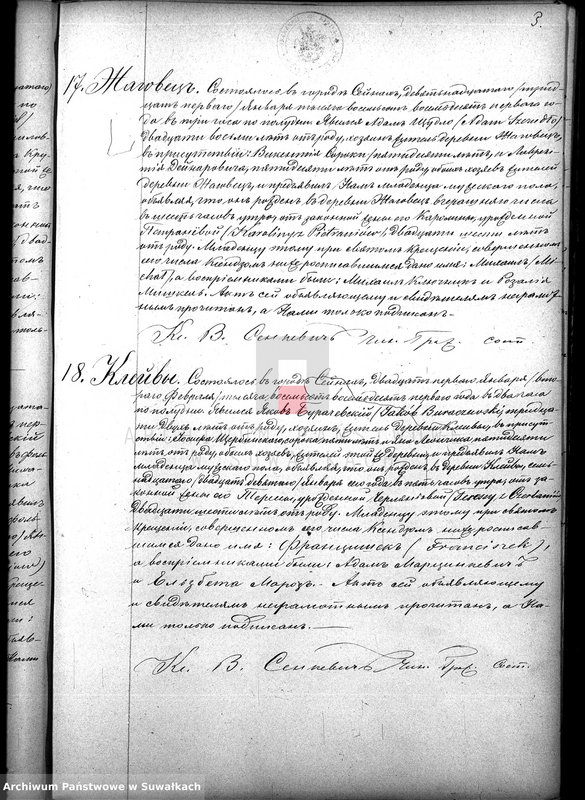 3.
17. Жаговецъ. Состоялось въ городѣ Сейнахъ, девятнадцатаго /тридцать
перваго/ Января тысяча восемьсотъ восемьдесятъ перваго го-
да въ три часа по полудни. Явился Адамъ Щудло /Adam Szczudło/
двадцати восьми лѣтъ отъ роду, хозяинъ житель деревни Жаговецъ,
въ присутствіи: Викентія Сороки /пятидесяти лѣтъ, и Лаврен-
тія, пятидесяти лѣтъ отъ роду обоихъ хозяевъ жителей
деревни Жаговецъ, и предъявилъ Намъ младенца мужескаго пола,
объявляя, что онъ рожденъ въ деревнѣ Жаговецъ вчерашняго числа
въ шесть часовъ утра, отъ законной жены его Каролины, урожденной
/Karoliny z Pietranisów/, двадцати шести лѣтъ
отъ роду. Младенцу этому при святомъ крещеніи, совершенномъ
сего числа Ксендзомъ нижеросписавшимся дано имя: Михаилъ /Mi-
chał/, а воспріемниками были: Михаилъ и Розалія
Актъ сей объявляющему и свидѣтелямъ неграмот-
нымъ прочитанъ, а Нами только подписанъ.-
Кс. В. Сенкевичъ Чин. Граж. сост.
18. Клейвы. Состоялось въ городѣ Сейнахъ, двадцать перваго Января /вто-
раго Февраля/ тысяча восемьсотъ восемьдесятъ перваго года въ два часа
по полудни. Явился Яковъ, тридца-
ти двухъ лѣтъ отъ роду, хозяинъ, житель деревни Клейвы, въ присут-
ствіи: Іосифа сорока пяти лѣтъ и пятидесяти
лѣтъ отъ роду, обоихъ хозяевъ, жителей той же деревни и предъявилъ Намъ
младенца мужескаго пола, объявляя, что онъ рожденъ въ деревнѣ Клейвы, сем-
надцатаго /двадцать девятаго/ Января сего года въ пять часовъ утра, отъ за-
конной жены его Тересы, урожденной
двадцати шести лѣтъ отъ роду. Младенцу этому при святомъ
крещеніи, совершенномъ сего числа Ксендзомъ нижеросписав-
шимся дано имя: Францишекъ (Franciszek),
а воспріемниками были: Адамъ Марцинкевичъ
и Елизбета Марозъ.- Актъ сей объявляющему
и свидѣтелямъ неграмотнымъ прочитанъ, а На-
ми только подписанъ.
Кс. В. Сенкевичъ Чин. Граж. Сост.
Archiwum Państwowe w Suwałkach